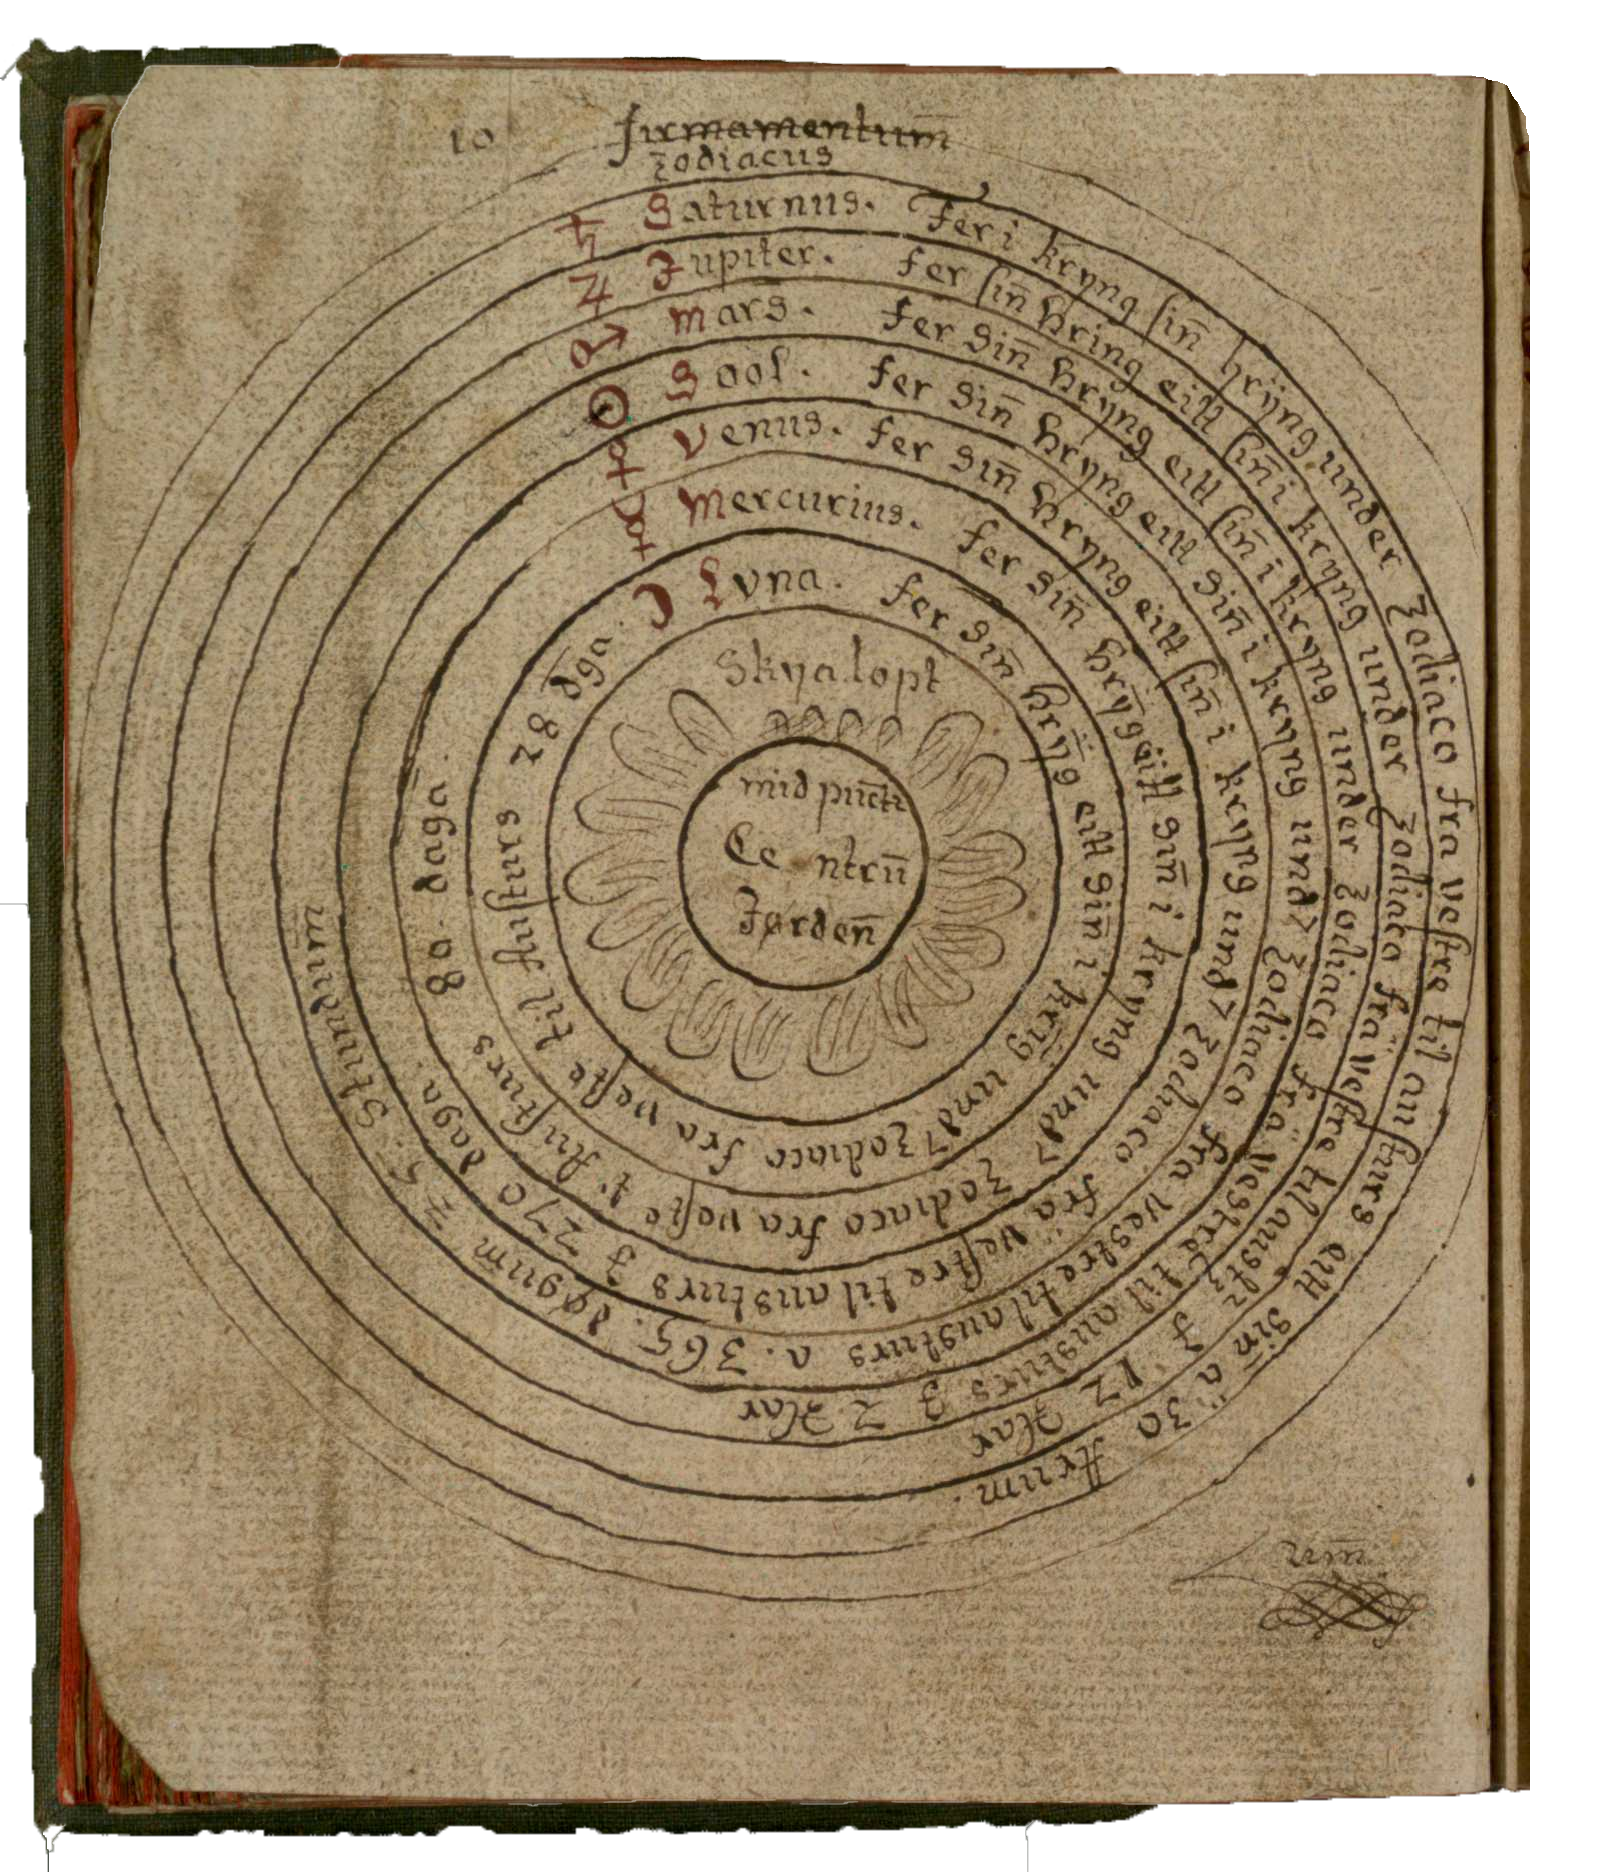 10
firmamentum̄
zodiacus
♄ Saturnus. Fer i kryng sin̄ hrÿng under Zodiaco fra vestre til austurs eitt sin̄ a 30 Arum.
♃ Jupiter. fer sin̄ hring eitt sin̄ i kryng under zodiaco fra vestre til austr J 12 Aar
♂ Mars. fer sin̄ hryng eitt sin̄ i kryng under zodiaco fra vestre til austurs J 2 Aar
☉ Sool. fer sin̄ hryng eitt sin̄ i kryng und zodiaco fra vestre til austurs a. 365. døgum 75. Stundum̄
♀ Venus. fer sin̄ hryng eitt sin̄ i kryng und zodiaco fra vestre til austurs J 270 daga.
☿ Mercurius. fer sin̄ hrÿg eitt sin̄ i kryng und Zodiaco fra veste t. Austurs 80. daga.
☽ Lvna. fer sin̄ hrÿg eitt sin̄ i krig und zodiaco fra veste til Austurs 28 dga.
Skya lopt
mid puncti
Centrū
Jørden̄